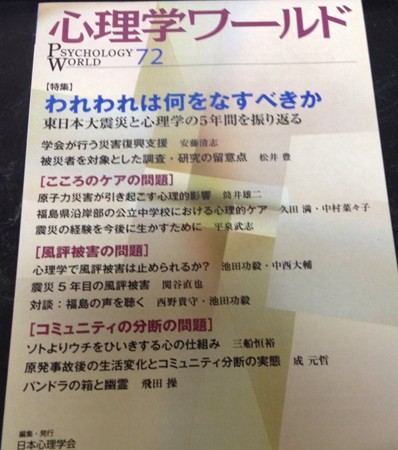 心理学ワールド
PSYCHOLOGY WORLD 72
[特集]
われわれは何をなすべきか
東日本大震災と心理学の5年間を振り返る
学会が行う災害復興支援 安藤清志
被災者を対象とした調査・研究の留意点 松井 豊
[こころのケアの問題]
原子力災害が引き起こす心理的影響 筒井雄二
福島県沿岸部の公立中学校における心理的ケア 久田 満・中村菜々子
震災の経験を今後に生かすために 平泉武志
[風評被害の問題]
心理学で風評被害は止められるか? 池田功毅・中西大輔
震災5年目の風評被害 関谷直也
対談:福島の声を聴く 西野貴守・池田功毅
[コミュニティの分断の問題]
ソトよりウチをひいきする心の仕組み 三船恒裕
原発事故後の生活変化とコミュニティ分断の実態 成 元哲
パンドラの箱と幽霊 飛田 操
編集・発行
日本心理学会